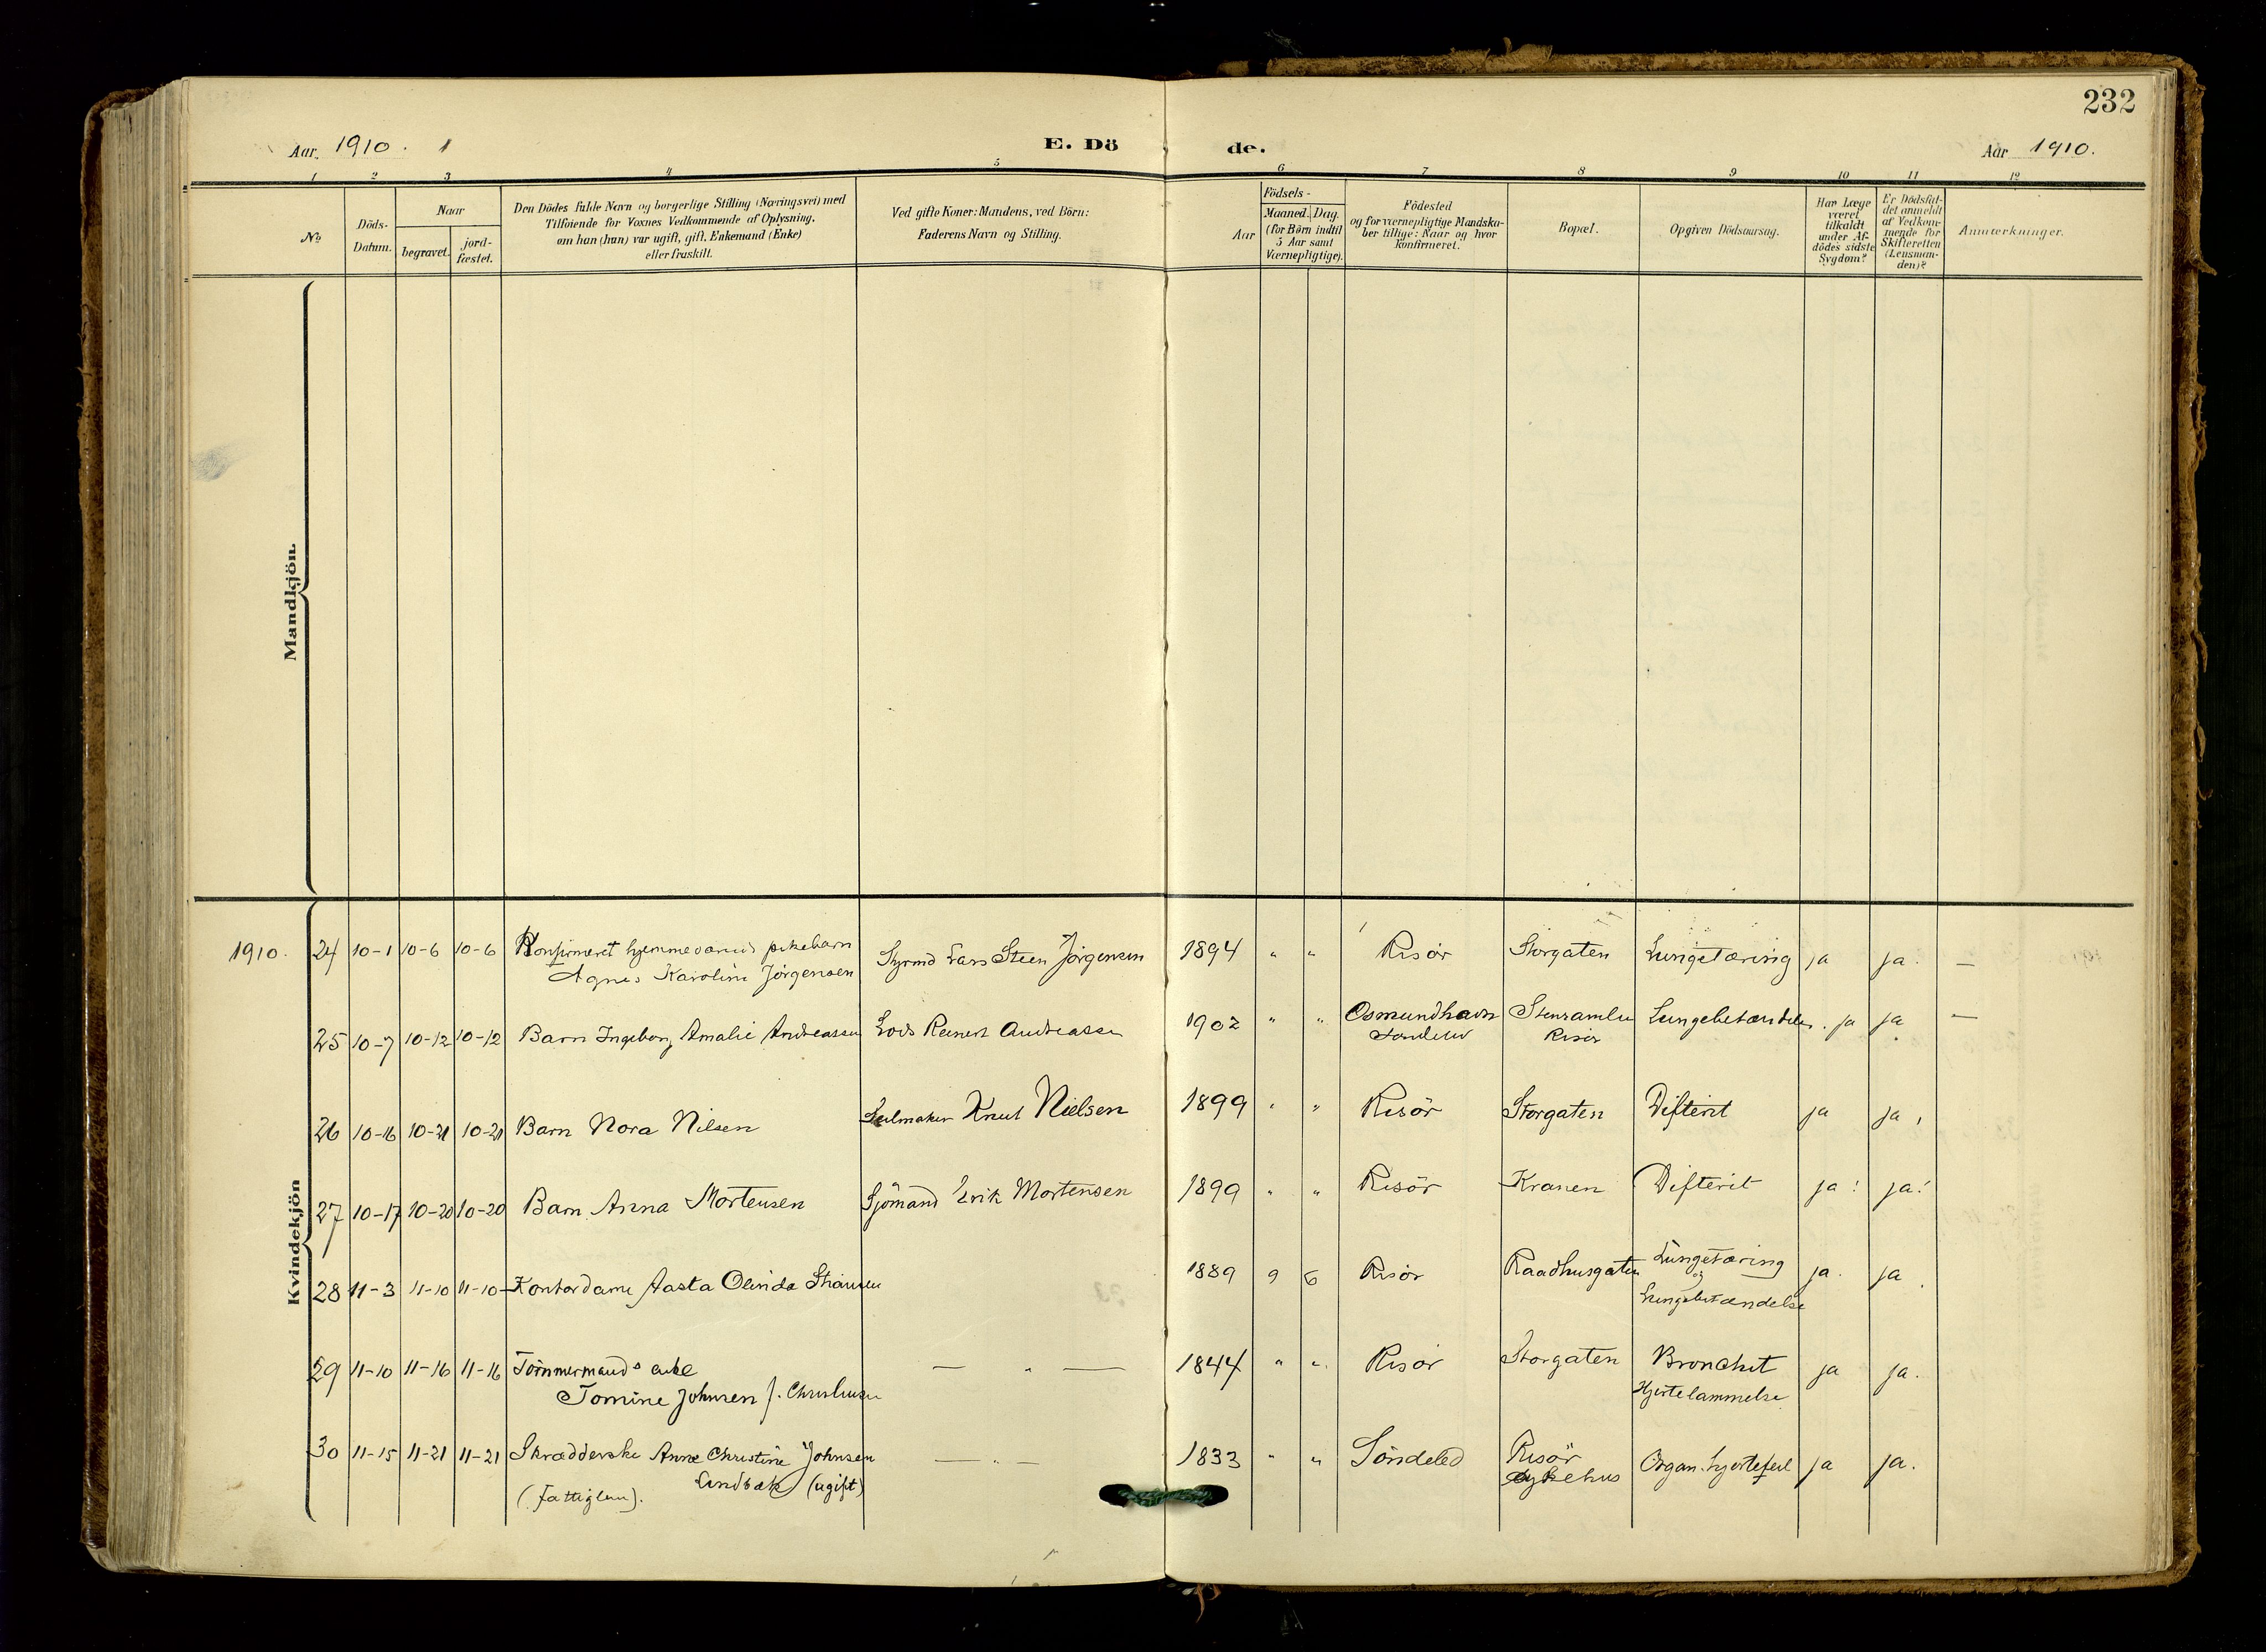 232
Aar 1910. 1 E. Dö de. Aar 1910.
1 2 3 4 5 6 7 8 9 10 11 12
No
Döds-Datum.
Naar
begravet. jord-fæstet.
Den Dödes fulde Navn og borgerlige Stilling (Næringsvei) med
Tilföiende for Voxnes Vedkommende af Oplysning,
om han (hun) var ugift, gift, Enkemand (Enke)
eller fraskilt.
Ved gifte Koner: Mandens, ved Börn:
Faderens Navn og Stilling.
Födsels-
Aar Maaned. Dag.
(for Börn indtil
5 Aar samt
Værnepligtige).
Födested
og for værnepligtige Mandska-
ber tillige: Naar og hvor
konfirmeret.
Bopæl.
Opgiven Dödsaarsag.
Har Læge
været
tilkaldt
under Af-
dödes sidste
Sygdom?
Er Dödsfal-
det anmeldt
af Vedkom-
mende for
Skifteretten
(Lensman-
den)?
Anmærkninger.
Mandkjön.
Kvindekjön
1910. 24 10-1 10-6 10-6 Konfirmeret hjemmeværend pikebarn
Agnes Karoline Jörgensen Styrmd Lars Steen Jörgensen 1894 " " Risör Storgaten Lungetæring ja ja. —
25 10-7 10-12 10-12 Barn Ingeborg Amalie Andreassen Lods Reinert Andreassen 1902 " " Osmundhavn Stensamlen Lungebetændelse. ja ja —
Söndeled Risör
26 10-16 10-21 10-21 Barn Nora Nilsen Seilmaker Knut Nielsen 1899 " " Risör Storgaten Difterit ja ja,
27 10-17 10-20 10-20 Barn Anna Mortensen Sjömand Erik Mortensen 1899 " " Risör Kranen Difterit ja! ja!
28 11-3 11-10 11-10 Kontordame Aasta Olinda 1889 9 6 Risör Raadhusgaten Lungetæring ja. ja.
og
Lungebetændelse
29 11-10 11-16 11-16 Tömmermands enke — " — 1844 " " Risör Storgaten Bronchit ja ja.
Tomine Johnsen f. Christensen Hjertelammelse
30 11-15 11-21 11-21 Skrædderske Anne Christine Johnsen — " — 1833 " " Söndeled Risör Organ. hjertefeil ja ja.
Lindbæk (ugift) sykehus
(fattiglem).